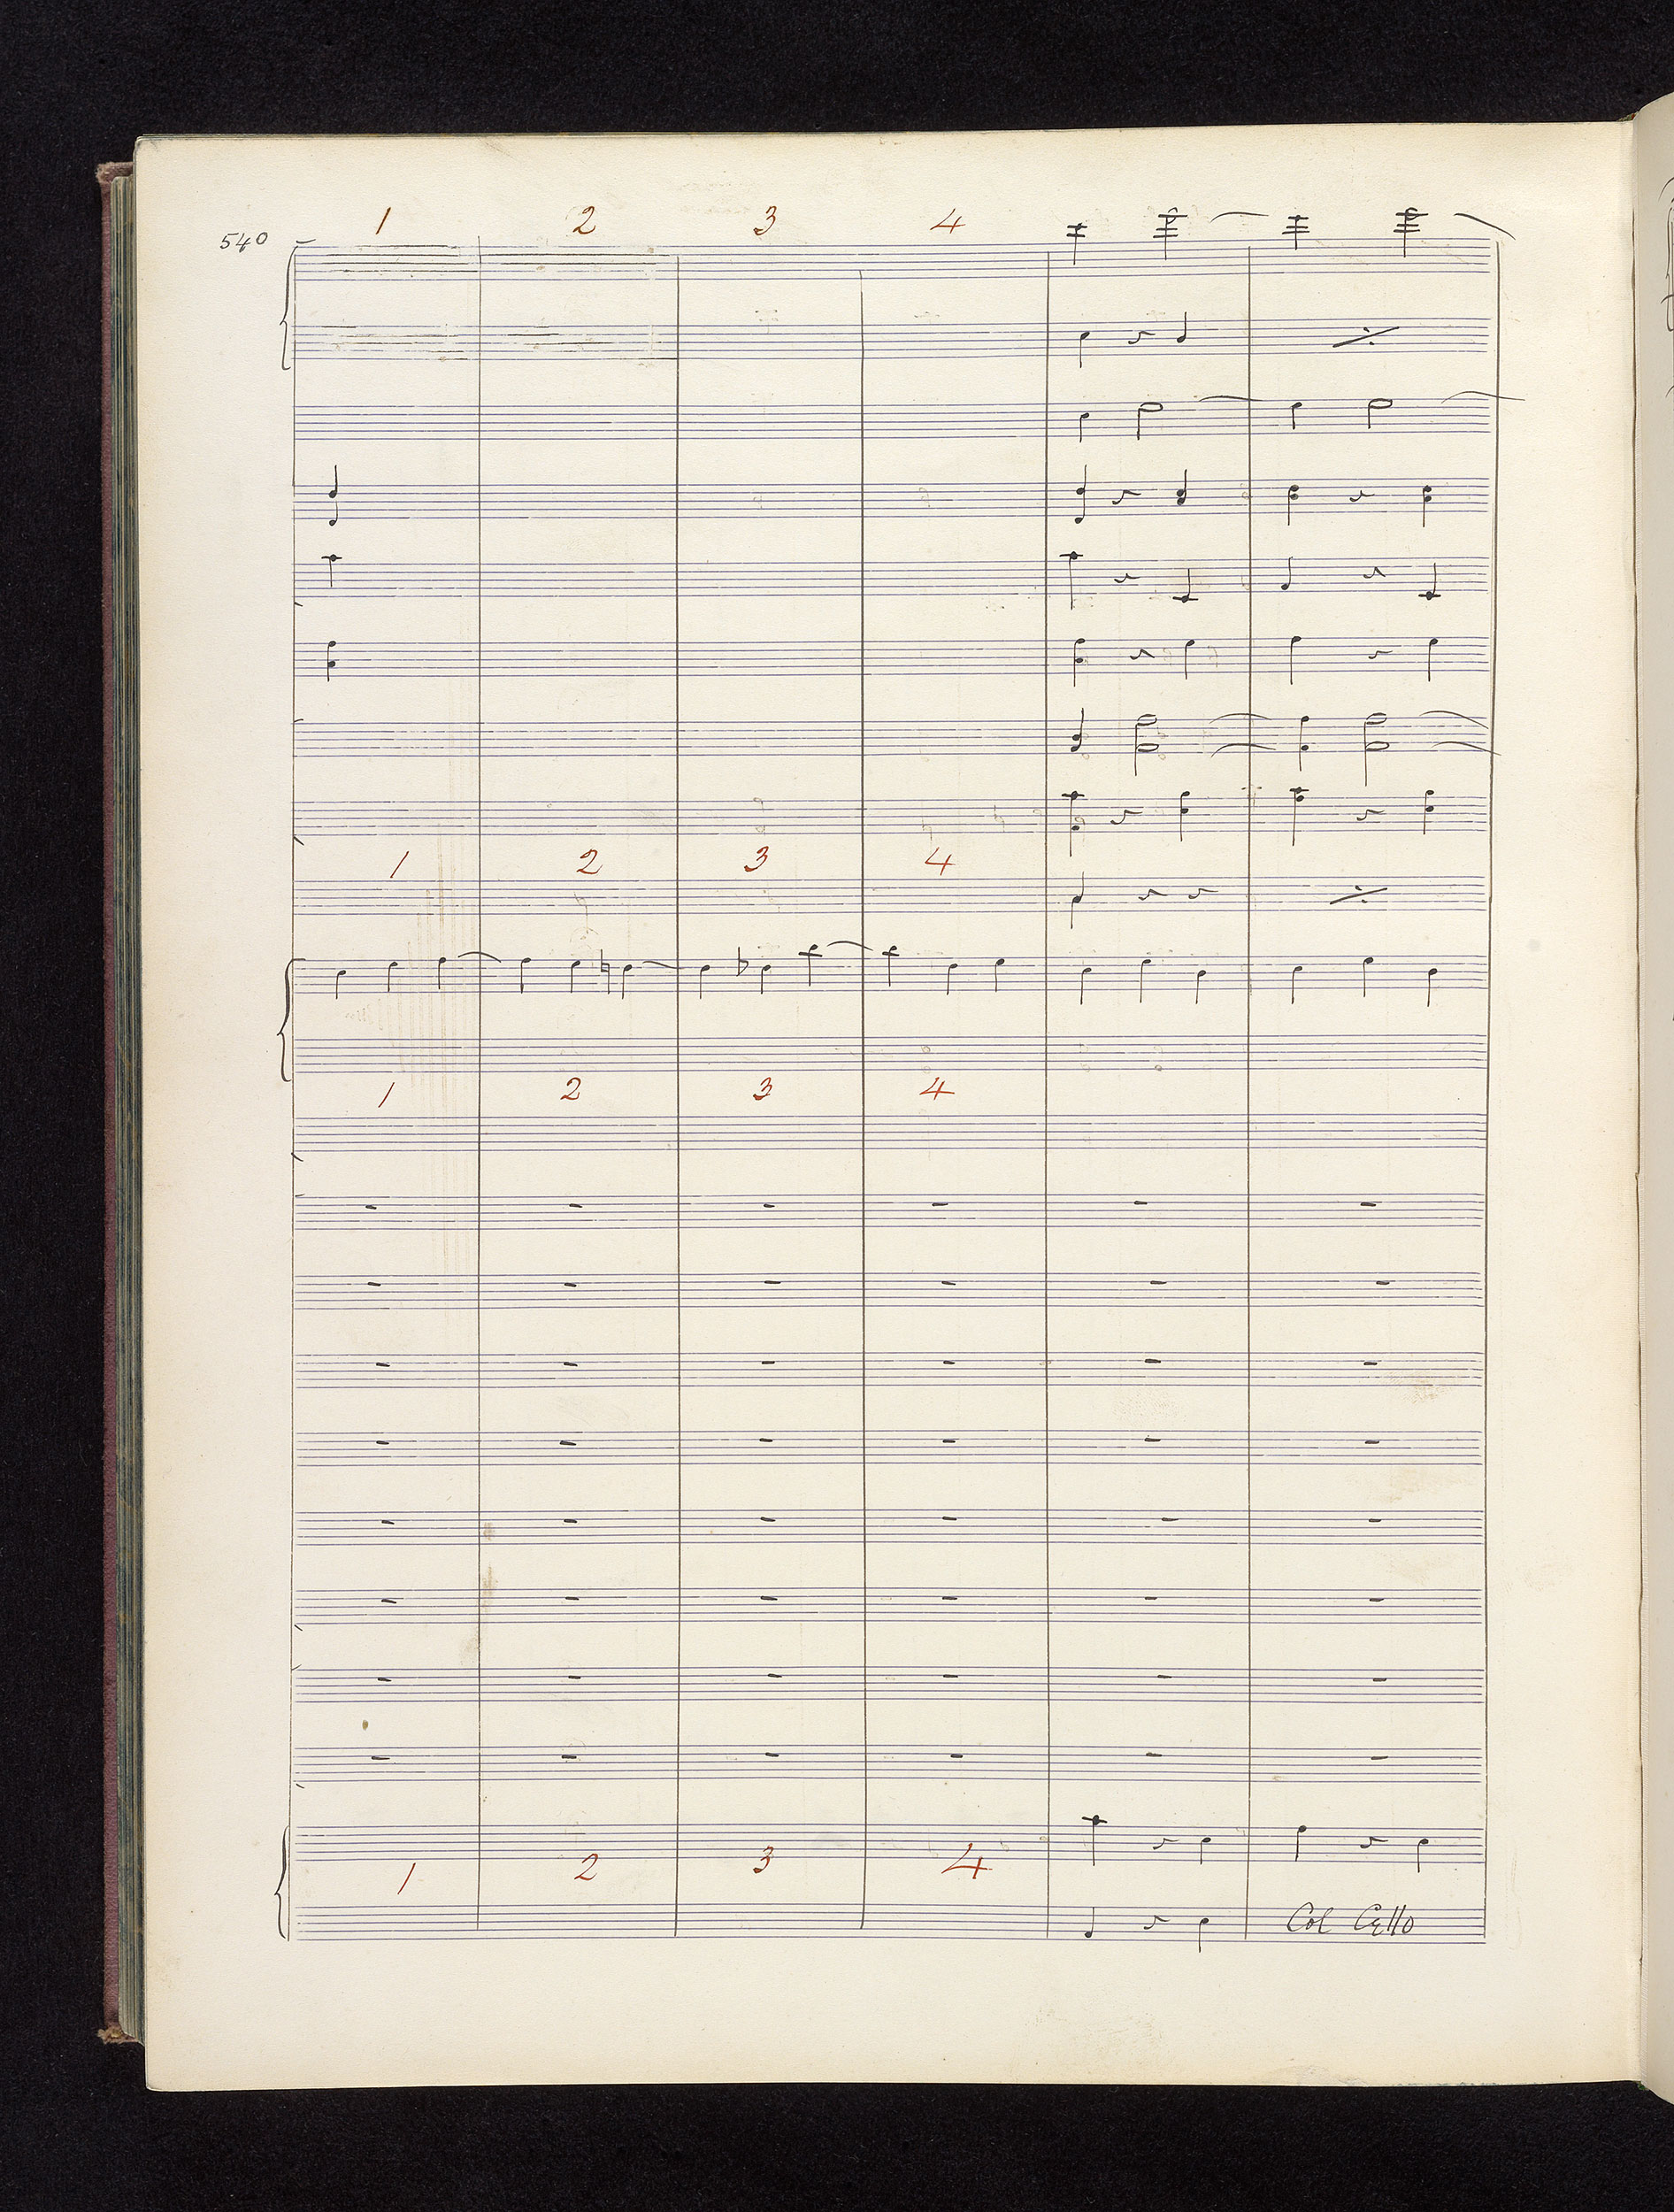 540
1 2 3 4
1 2 3 4
1 2 3 4
1 2 3 4
Col Cello